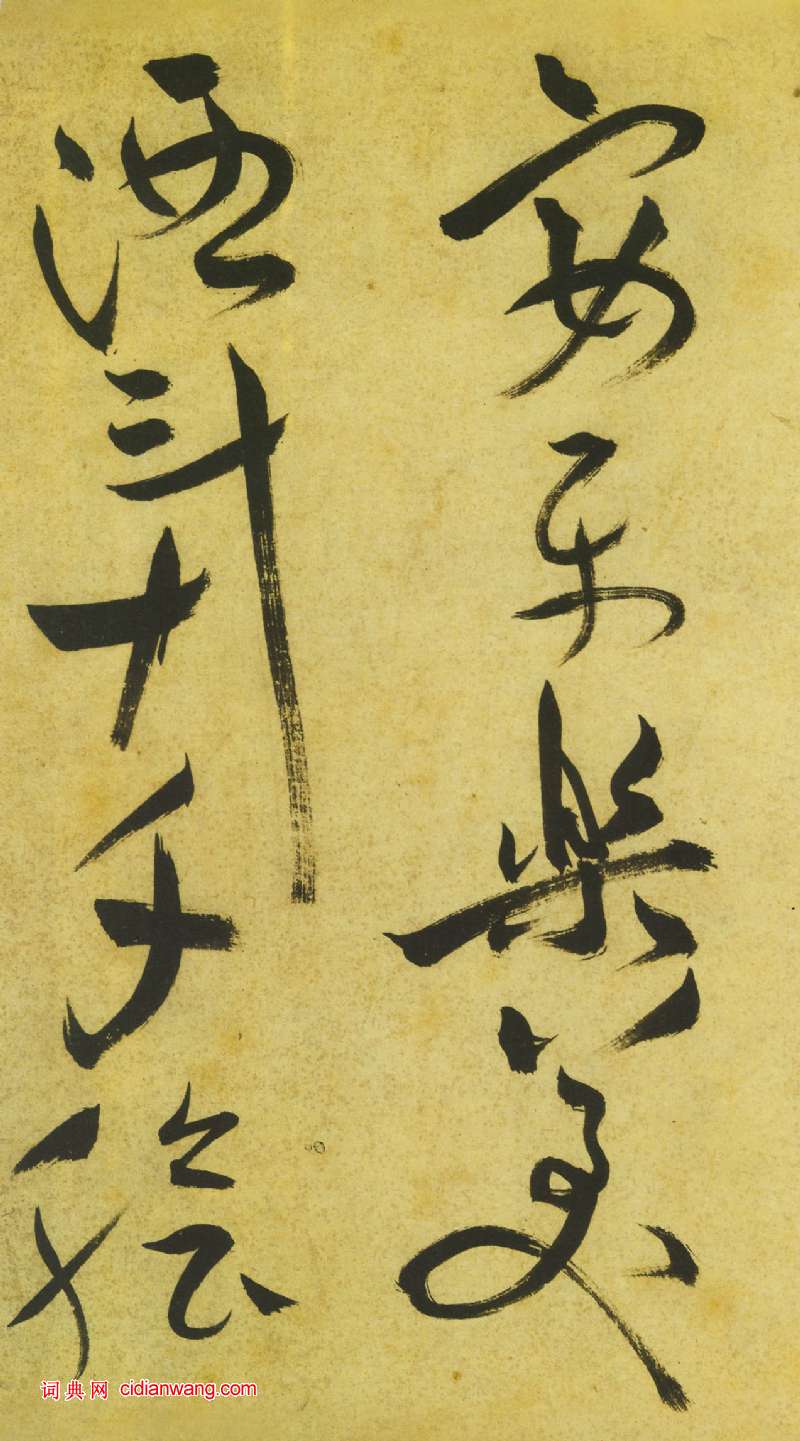 宴平樂美
酒斗十千膾
词典网 cidianwang.com